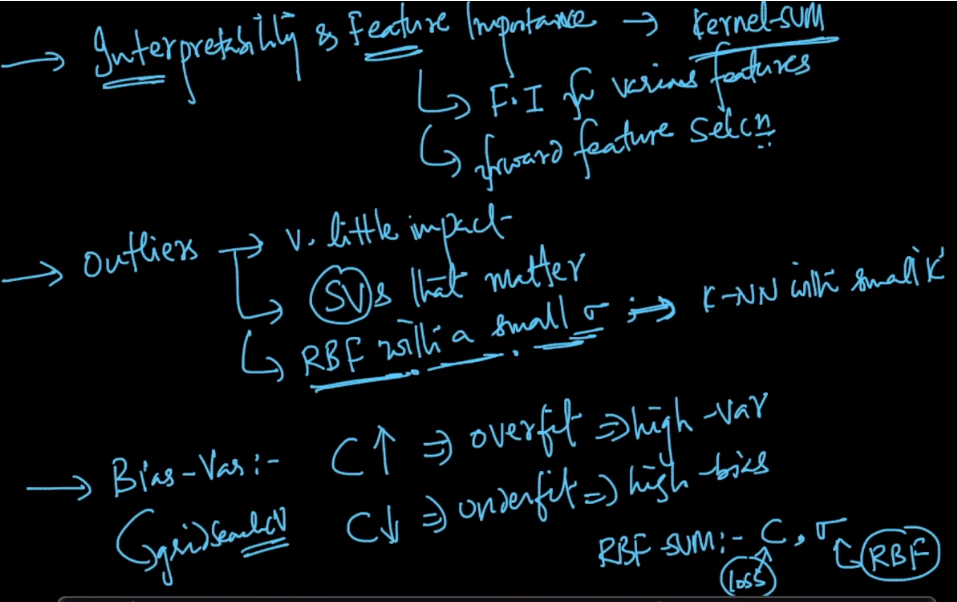 → Interpretability & Feature Importance → Kernel-SVM
↳ F.I for various features
↳ forward feature selcn
→ Outliers → v. little impact
↳ SVs that matter
↳ RBF with a small σ → K-NN with small 'K'
→ Bias-Var:- C↑ ⇒ overfit ⇒ high-var
↳ gridSearchCV C↓ ⇒ underfit ⇒ high-bias
RBF-SVM:- C, σ
loss RBF